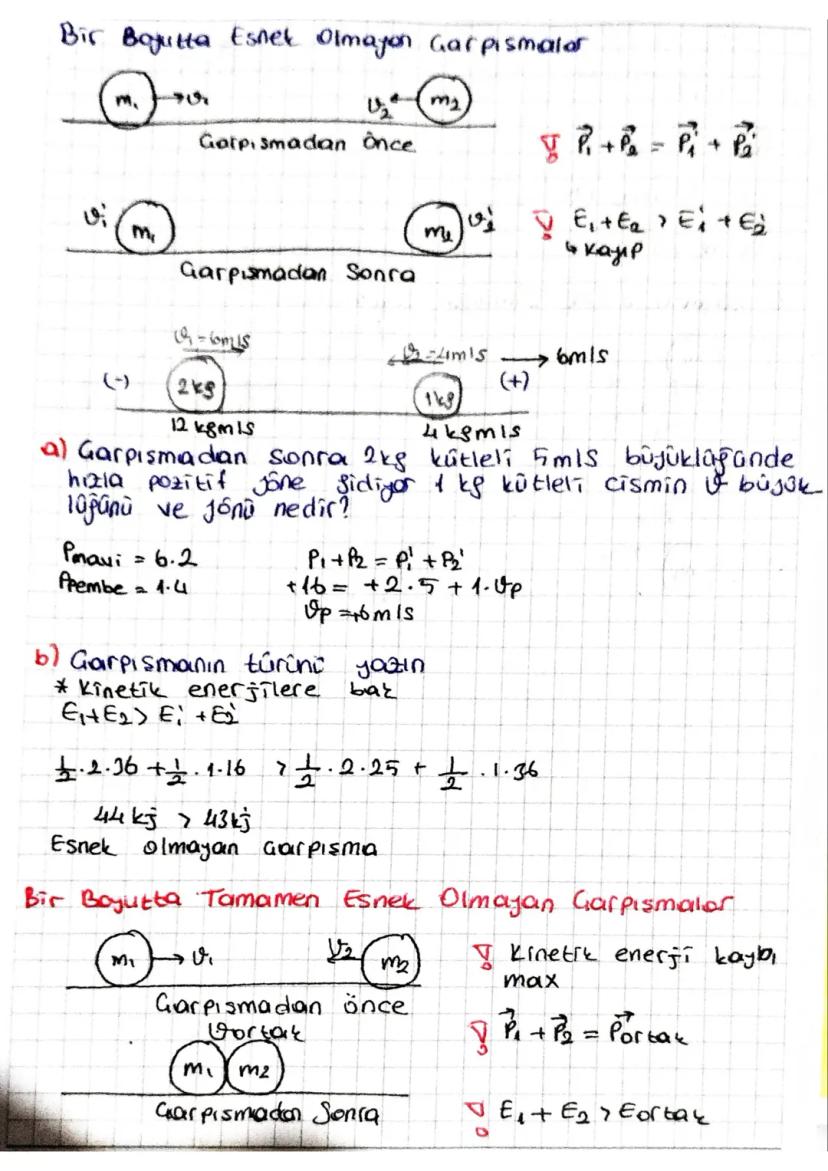 Bir Boyutta Esnek Olmayan Çarpışmalar
m₁ →υ₁ υ₂← m₂
Çarpışmadan Önce
! P₁ + P₂ = P₁' + P₂'
υ₁' m₁ m₂ υ₂'
! E₁+E₂ > E₁' + E₂'
↳ kayıp
Çarpışmadan Sonra
υ₁=6m/s υ₂=4m/s → 6m/s
(-) 2kg 1kg (+)
12 kgm/s 4 kgm/s
a) Çarpışmadan sonra 2kg kütleli 5m/s büyüklüğünde
hızla pozitif yöne gidiyor 1 kg kütleli cismin υ büyük
lüğünü ve yönü nedir?
Pmavi = 6.2 P₁+P₂ = P₁' + P₂'
Ppembe = 1.4 +16 = +2.5 + 1.υp
υp =+6m/s
b) Çarpışmanın türünü yazın
* Kinetik enerjilere bak
E₁+E₂ > E₁' + E₂'
1/2 .2.36 + 1/2 .1.16 > 1/2 .2.25 + 1/2 .1.36
44kj > 43kj
Esnek olmayan çarpışma
Bir Boyutta Tamamen Esnek Olmayan Çarpışmalar
m₁ → υ₁ υ₂ m₂
! Kinetik enerji kaybı
max
Çarpışmadan önce
υortak
! P₁ + P₂ = Portak
m₁ m₂
Çarpışmadan Sonra
! E₁ + E₂ > Eortak